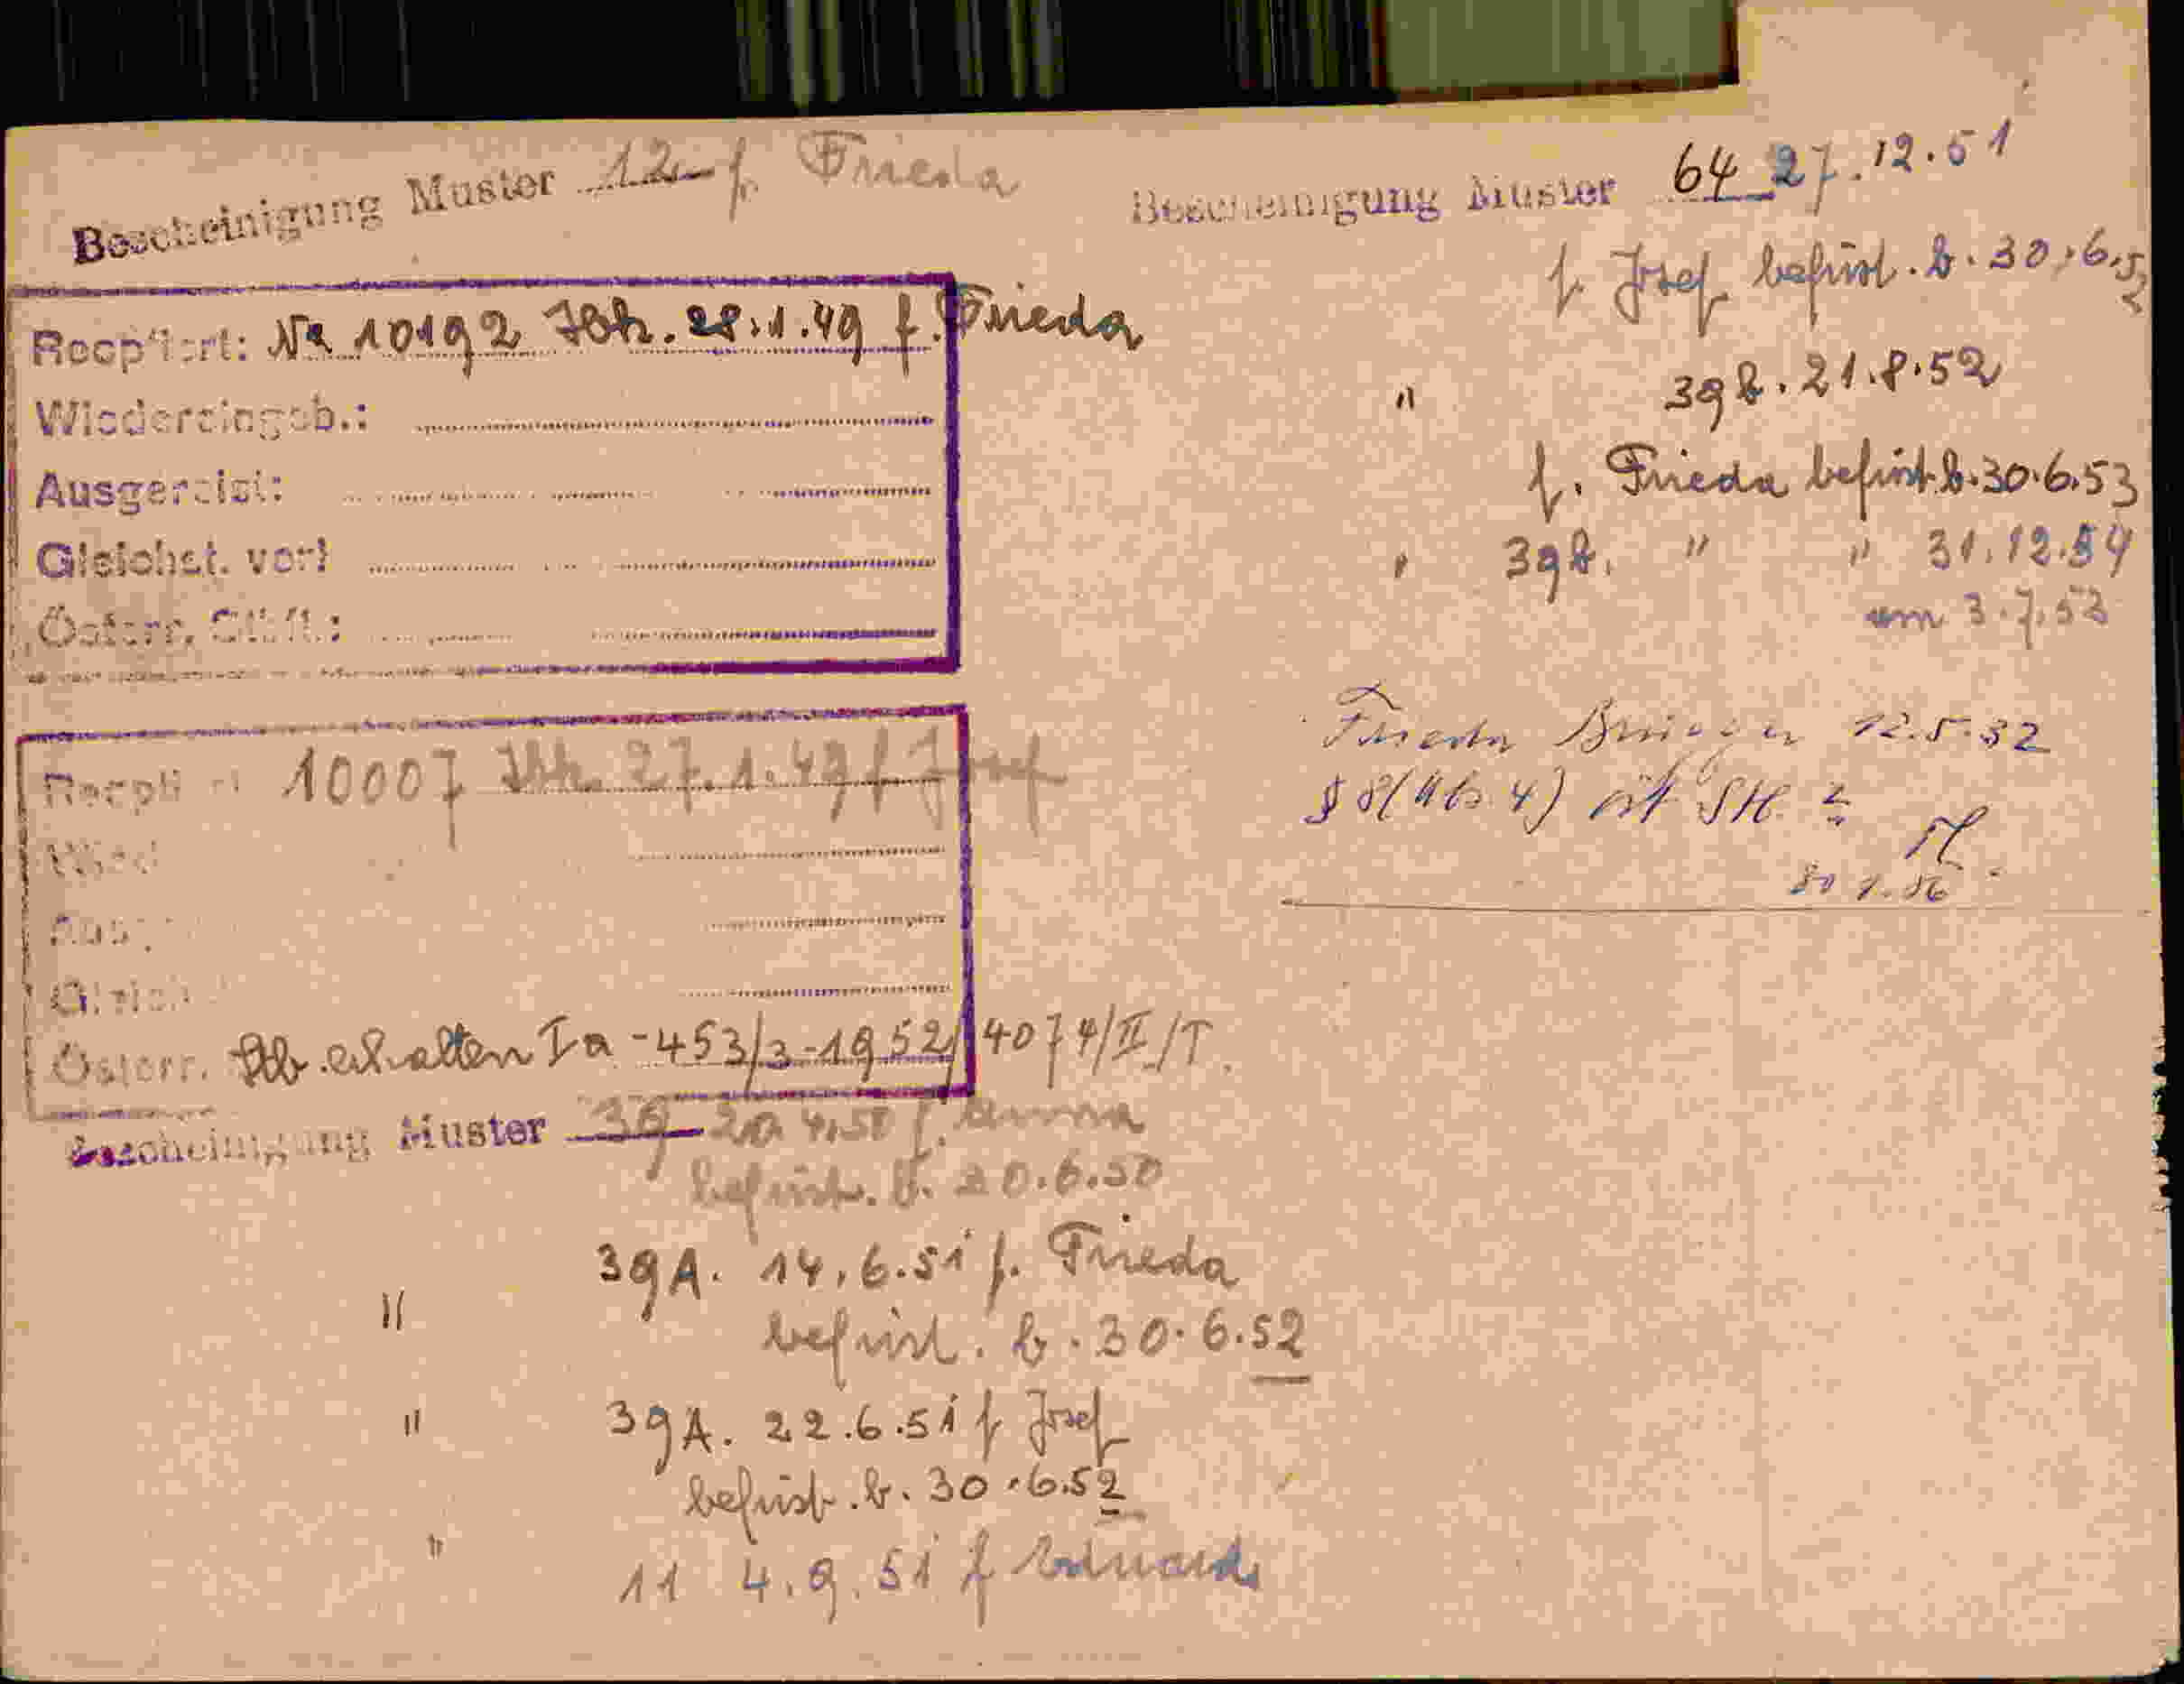 Bescheinigung Muster 12 f. Frieda
Reopt'iert: Nr 10192 Ibk. 28.1.49 f. Frieda
Wiedereingeb.:
Ausgereist:
Gleichst. verl
Österr.
10007 Ibk. 27.1.49 f Josef
Wied
Ausg
Gleich
Österr. Stb. erhalten Ia - 453/3-1952/4074/II/T.
Bescheinigung Muster 39 20.4.50 f. Anna
befrist. b. 20.6.50
" 39A. 14.6.51 f. Frieda
befrist. b. 30.6.52
" 39A. 22.6.51 f Josef
befrist. b. 30.6.52
" 11 4.9.51 f Eduard
Bescheinigung Muster 64 27.12.51
f. Josef befrist. b. 30.6.52
" 39b. 21.8.52
f. Frieda befrist. b. 30.6.53
" 39b. " " 31.12.54
am 3.7.53
Frieda 12.5.32
§ 8(Abs 4)